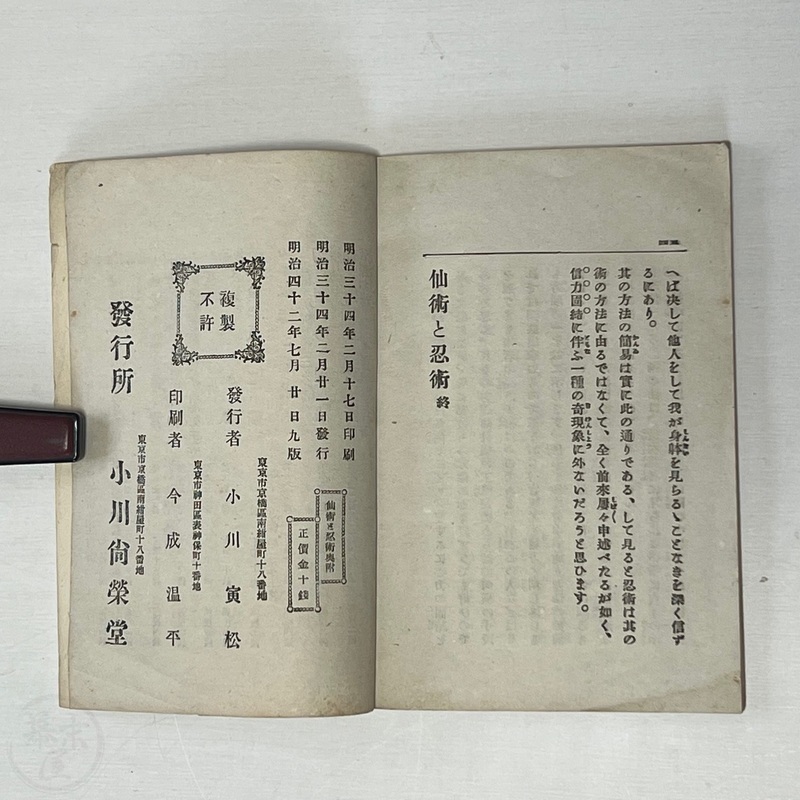 へば决して他人をして我が身躰を見らるゝことなきを深く信ず
るにあり。
其の方法の簡易は實に此の通りである、して見ると忍術は其の
術の方法に由るではなくて、全く前來屡々申述べたるが如く、
信力固結に伴ふ一種の奇現象に外ないだらうと思ひます。
仙術と忍術 終
仙術と忍術奥附
正價金十錢
明治三十四年二月十七日印刷
明治三十四年二月廿一日發行
明治四十二年七月廿日九版
複製
不許
東京市京橋區南紺屋町十八番地
發行者 小川寅松
東京市神田區表神保町十番地
印刷者 今成温平
東京市京橋區南紺屋町十八番地
發行所 小川尙榮堂